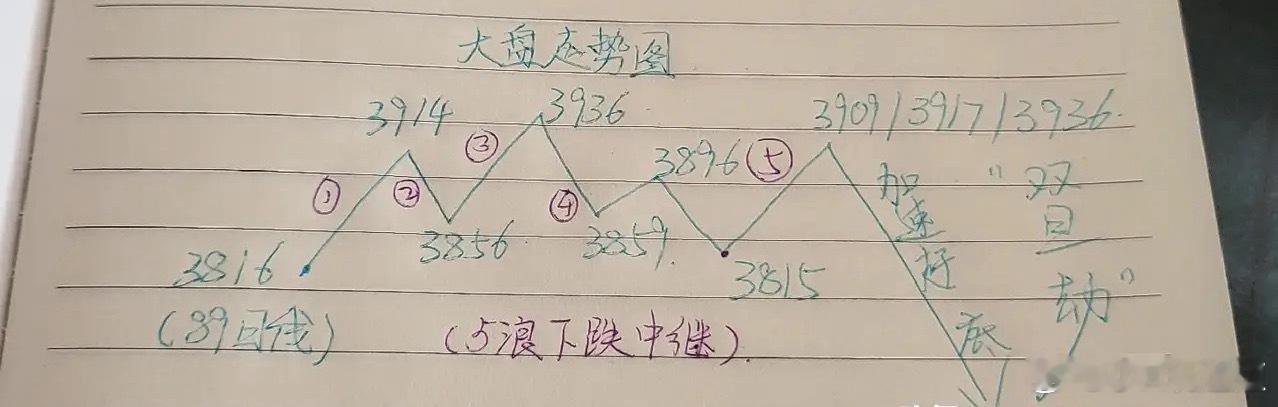 大盘走势图
3914
3936
3909/3917/3936
③
3896
⑤
①
②
④
3856
3859
3816
3815
(89日线)
(5浪下跌中继)
加速探底
"双旦劫"